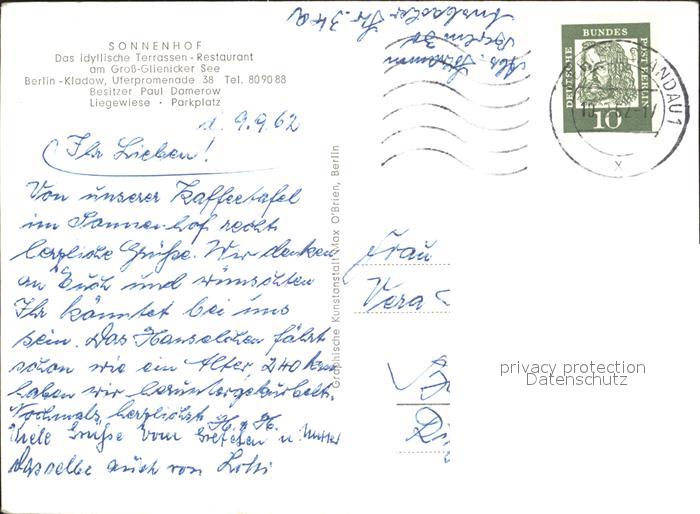 SONNENHOF
Das idyllische Terrassen-Restaurant
am Groß-Glienicker See
Berlin-Kladow, Uferpromenade 38 Tel. 80 90 88
Besitzer Paul Damerow
Liegewiese · Parkplatz
d. 9.9.62
Ihr Lieben!
Von unserer Kaffeetafel
im Sonnenhof recht
herzliche Grüße. Wir denken
an Euch und wünschten
Ihr könntet bei uns
sein. Das Hänselchen fährt
schon wie ein Alter, 240 km
haben wir heruntergekurbelt.
Nochmals herzlichst H. u. H.
Viele Grüße vom Gretchen u. Mutter
Dasselbe auch von Lotti
Graphische Kunstanstalt Max O'Brien, Berlin
Berlin
Str. 34a
DEUTSCHE BUNDES POST BERLIN
10
SPANDAU 1
x
Frau
Vera
privacy protection
Datenschutz